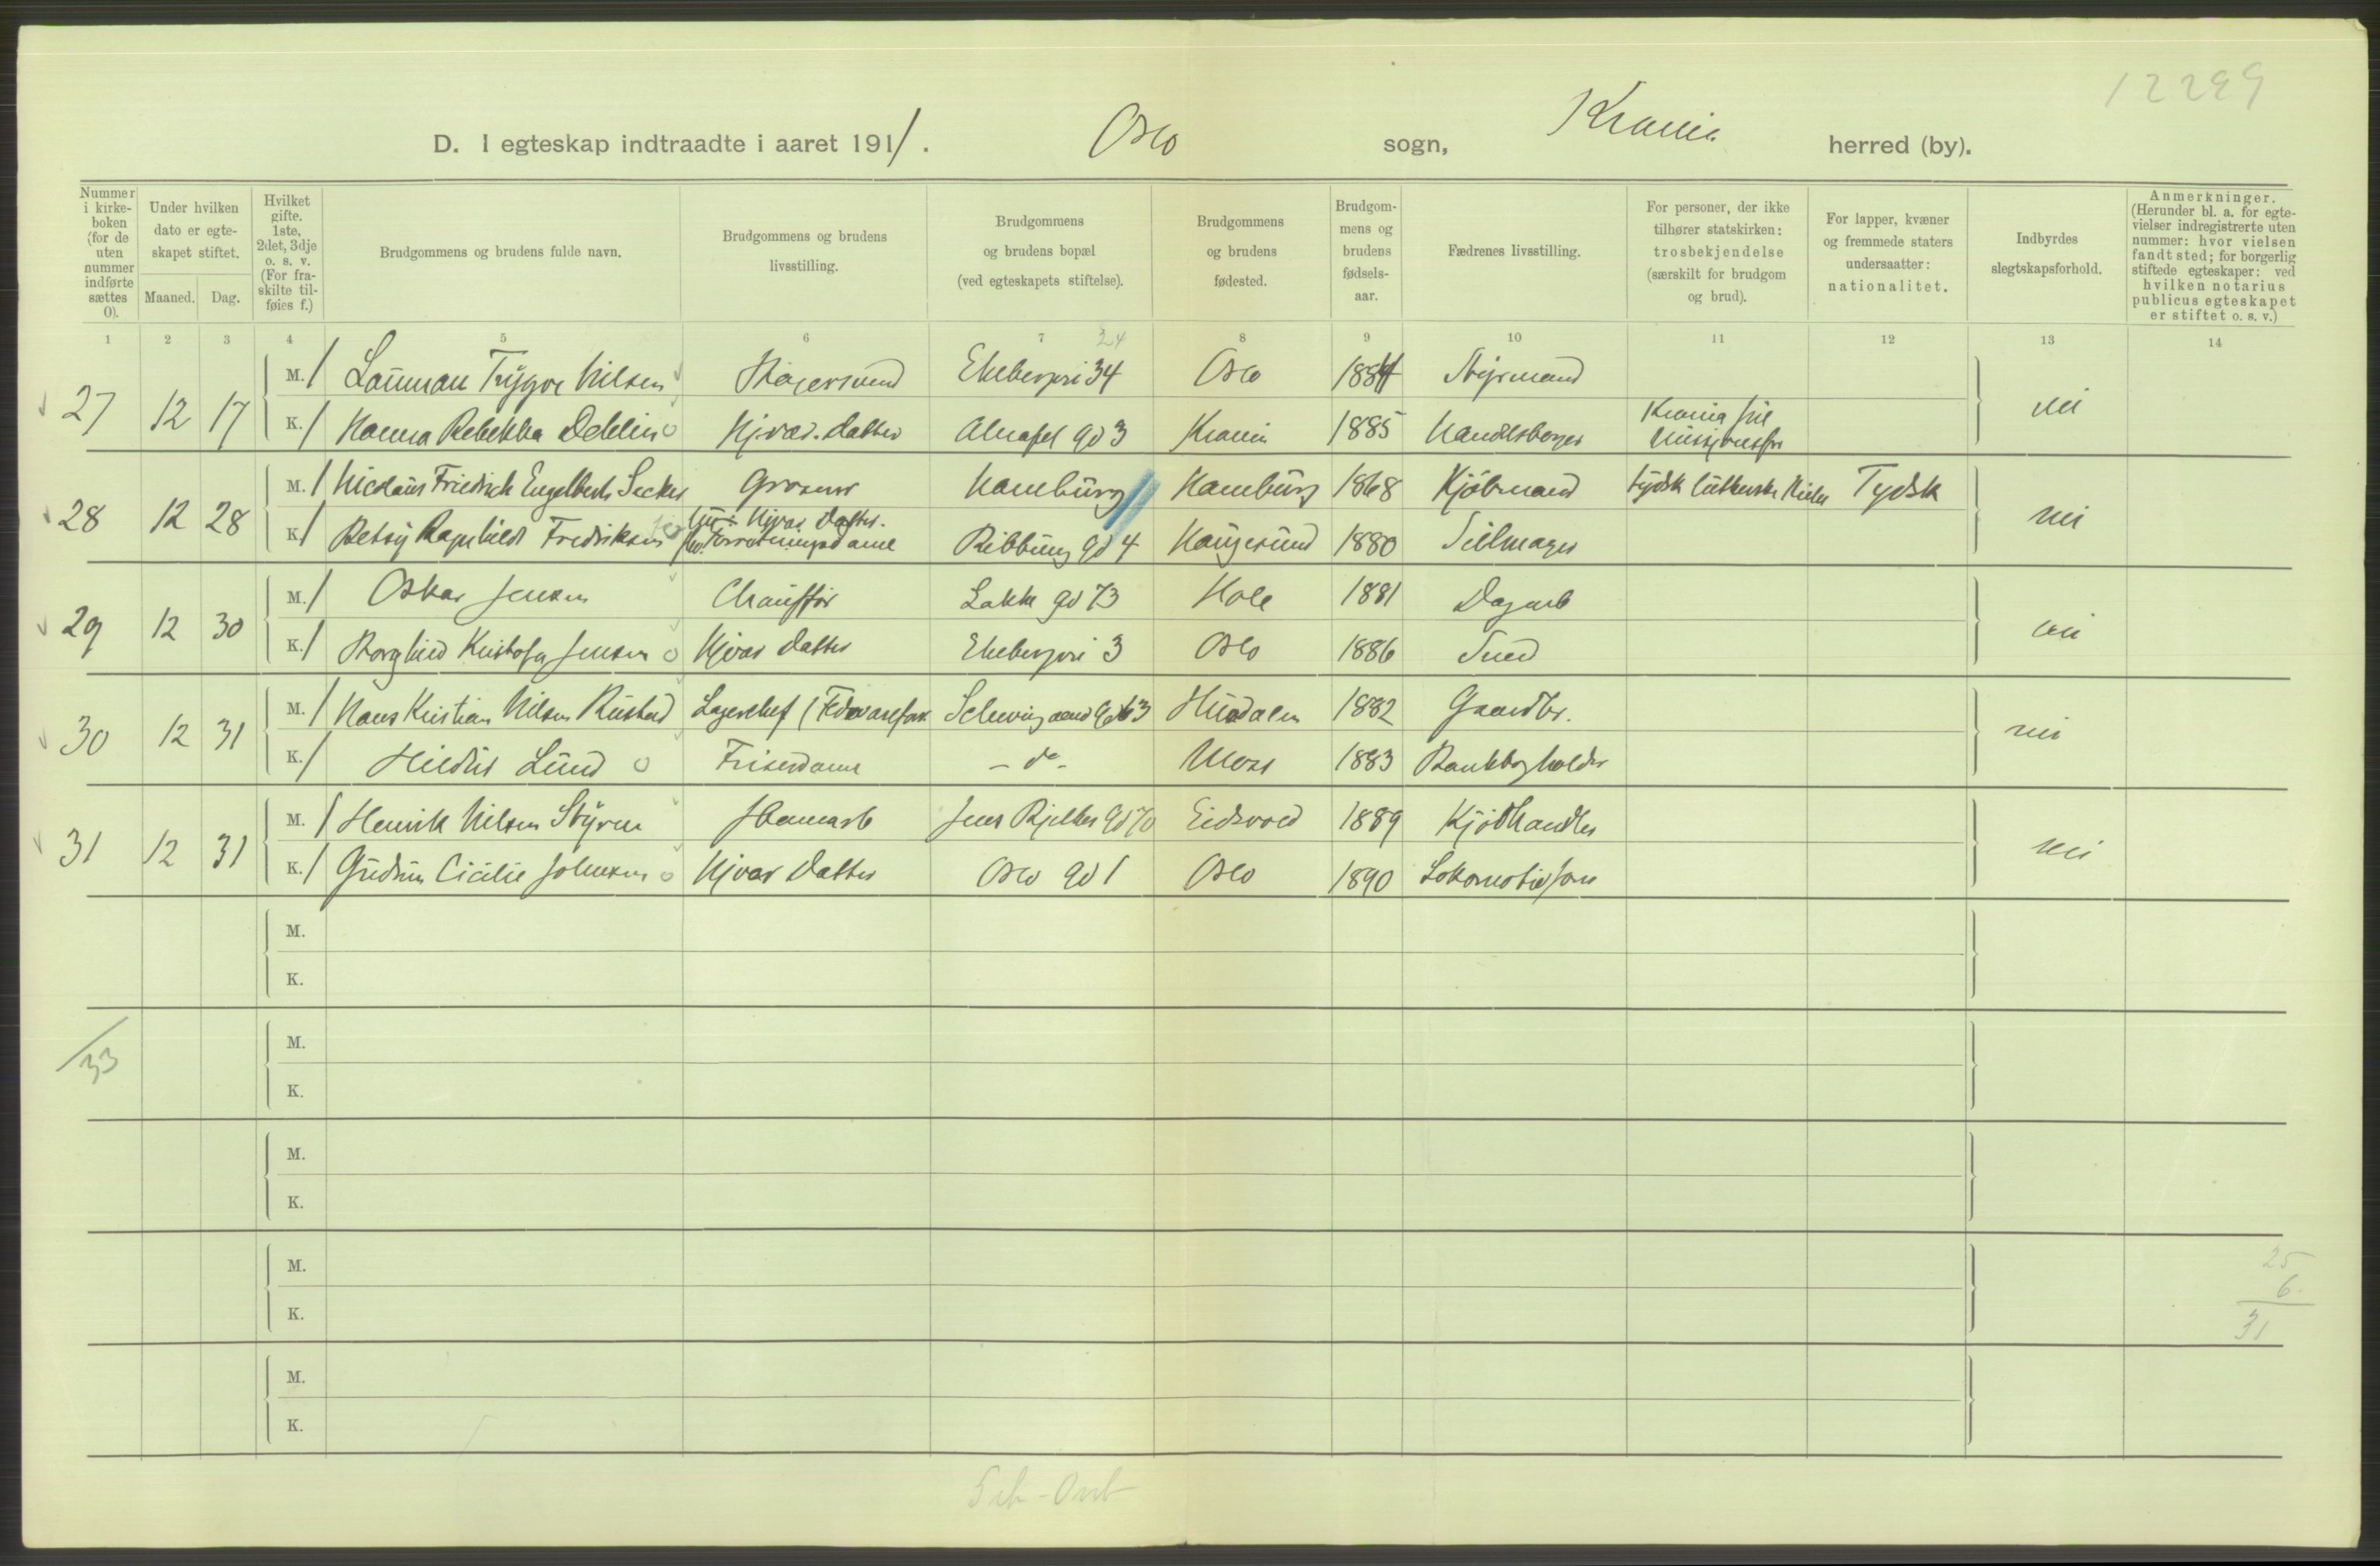 12299
D. I egteskap indtraadte i aaret 1911. Oslo sogn, Krania herred (by).
Nummer i kirkeboken (for de uten nummer indførte sættes 0).
Under hvilken dato er egteskapet stiftet.
Maaned. Dag.
Hvilket gifte. 1ste, 2det, 3dje o. s. v. (For fraskilte tilføies f.)
Brudgommens og brudens fulde navn.
Brudgommens og brudens livsstilling.
Brudgommens og brudens bopæl (ved egteskapets stiftelse).
Brudgommens og brudens fødested.
Brudgommens og brudens fødselsaar.
Fædrenes livsstilling.
For personer, der ikke tilhører statskirken: trosbekjendelse (særskilt for brudgom og brud).
For lapper, kvæner og fremmede staters undersaatter: nationalitet.
Indbyrdes slegtskapsforhold.
Anmerkninger. (Herunder bl. a. for egtevielser indregistrerte uten nummer: hvor vielsen fandt sted; for borgerlig stiftede egteskaper: ved hvilken notarius publicus egteskapet er stiftet o. s. v.)
1 2 3 4 5 6 7 8 9 10 11 12 13 14
24
27 12 17 M. 1 Trygve Nilsen Ekebergvei 34 Oslo 1884 Styrmand nei
K. 1 Hanna Rebekka Dehlin Hjv. datter Alnafet gd 3 Krania 1885 Handelsborger Krania frie Missionsf.
28 12 28 M. 1 Nicolaus Friedrich Engelbert Grosserer Hamburg Hamburg 1868 Kjøbmand tydsk lutherske Kirke Tydsk nei
K. 1 Betsy Ragnhild Fredriksen Hjv. Datter. Forretningsdame Ribbung gd 4 Haugesund 1880 Seilmager
29 12 30 M. 1 Oskar Jensen Chauffør Lakke gd 73 Hole 1881 Dagarb nei
K. 1 Borghild Kristofa Jensen Hjvær datter Ekebergvei 3 Oslo 1886 Smed
30 12 31 M. 1 Hans Kristian Nilsen Rustad Lagerchef Schweigaard Gd 63 Hurdalen 1882 Gaardbr. nei
K. 1 Hildur Lund Friserdame - do - Moss 1883 Bankbogholder
31 12 31 M. 1 Henrik Nilsen Styren Jens Bjelkes Gd 70 Eidsvold 1889 Kjødhandler nei
K. 1 Gudrun Cicilie Johnsen Hjvær Datter Oslo gd 1 Oslo 1890 Lokomotivfører
M.
K.
33
M.
K.
M.
K.
M.
K.
25
6
31
M.
K.